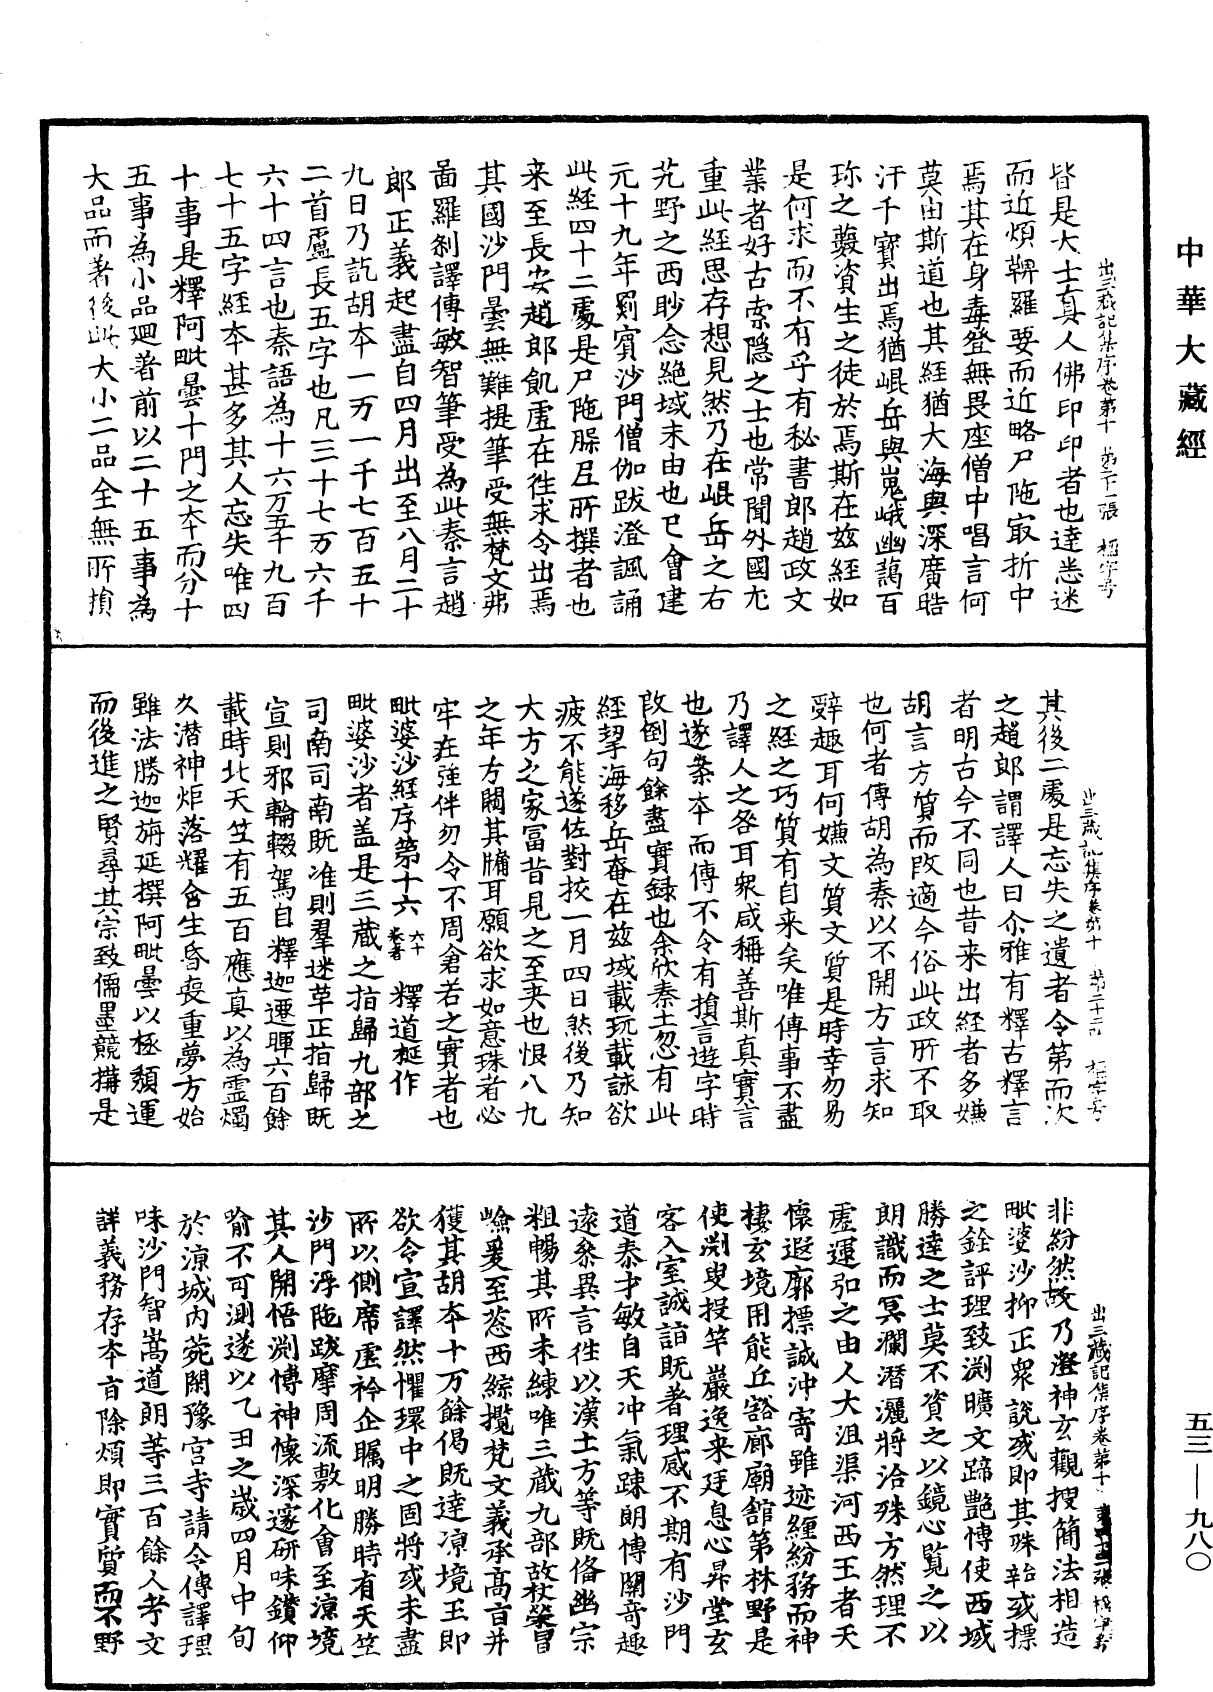 中華大藏經
出三藏記集序卷第十　第二十一張　楹字号
皆是大士真人佛印印者也達悉迷
而近煩鞞羅要而近略尸陁㝡折中
焉其在身毒登無畏座僧中唱言何
莫由斯道也其經猶大海與深廣晧
汗千寶出焉猶崐岳與嵬峨幽藹百
珎之藪資生之徒於焉斯在玆經如
是何求而不有乎有秘書郎趙政文
業者好古索隱之士也常聞外國尤
重此經思存想見然乃在崐岳之右
艽野之西眇念絶域末由也已會建
元十九年罽賓沙門僧伽跋澄諷誦
此經四十二䖏是尸陁槃𡰱所撰者也
来至長安趙郎飢虛在徃求令出焉
其國沙門曇無難提筆受無梵文弗
啚羅刹譯傳敏智筆受為此秦言趙
郎正義起盡自四月出至八月二十
九日乃訖胡夲一万一千七百五十
二首盧長五字也凡三十七万六千
六十四言也秦語為十六万五千九百
七十五字經夲甚多其人忘失唯四
十事是釋阿毗曇十門之夲而分十
五事為小品廻著前以二十五事為
大品而著後此大小二品全無所損
出三藏記集序卷第十　第二十二張　楹字号
其後二䖏是忘失之遺者令第而次
之趙郎謂譯人曰尒雅有釋古釋言
者明古今不同也昔来出經者多嫌
胡言方質而改適今俗此政所不取
也何者傳胡為秦以不開方言求知
辭趣耳何嫌文質文質是時幸勿易
之經之巧質有自来矣唯傳事不盡
乃譯人之咎耳衆咸稱善斯真實言
也遂案夲而傳不令有損言遊字時
改倒句餘盡實録也余欣秦土忽有此
經挈海移岳奄在玆域載玩載詠欲
疲不能遂佐對挍一月四日然後乃知
大方之家富昔見之至夾也恨八九
之年方闚其牖耳願欲求如意珠者必
牢莊強伴勿令不周倉若之實者也
毗婆沙經序第十六六十卷者　釋道梴作
毗婆沙者盖是三藏之指歸九部之
司南司南既准則羣迷革正指歸既
宣則邪輪輟駕自釋迦遷暉六百餘
載時北天竺有五百應真以為霊燭
久潜神炬落耀含生昏䘮重夢方始
雖法勝迦旃延撰阿毗曇以極頹運
而後進之賢尋其宗致儒墨競搆是
出三藏記集序卷第十　第二十三張　楹字号
非紛然故乃澄神玄觀搜簡法相造
毗婆沙抑正衆說或即其殊辯或標
之銓評理致渕曠文蹄艶愽使西域
勝達之士莫不資之以鏡心覧之以
朗識而冥瀾潜灑將洽殊方然理不
虛運弘之由人大沮渠河西王者天
懷遐廓摽誠沖寄雖迹纏紛務而神
棲玄境用能丘豁廊廟舘第林野是
使渕叟投竿巖逸来廷息心昇堂玄
客入室誠詣既著理感不期有沙門
道泰才敏自天冲氣踈朗愽關奇趣
遠叅異言徃以漢土方等既俻幽宗
粗暢其所未練唯三藏九部故杖䇿冒
嶮爰至葱西綜攬梵文義承髙旨并
獲其胡夲十万餘偈既達涼境王即
欲令宣譯然懼環中之固將或未盡
所以側席虛衿企矚明勝時有天竺
沙門浮陁䟦摩周流敷化會至涼境
其人開悟渕愽神懷深邃研味鑽仰
喻不可測遂以乙丑之歲四月中旬
於涼城内菀閑豫宫寺請令傳譯理
味沙門智嵩道朗等三百餘人考文
詳義務存夲旨除煩即實質而不野
五三—九八〇